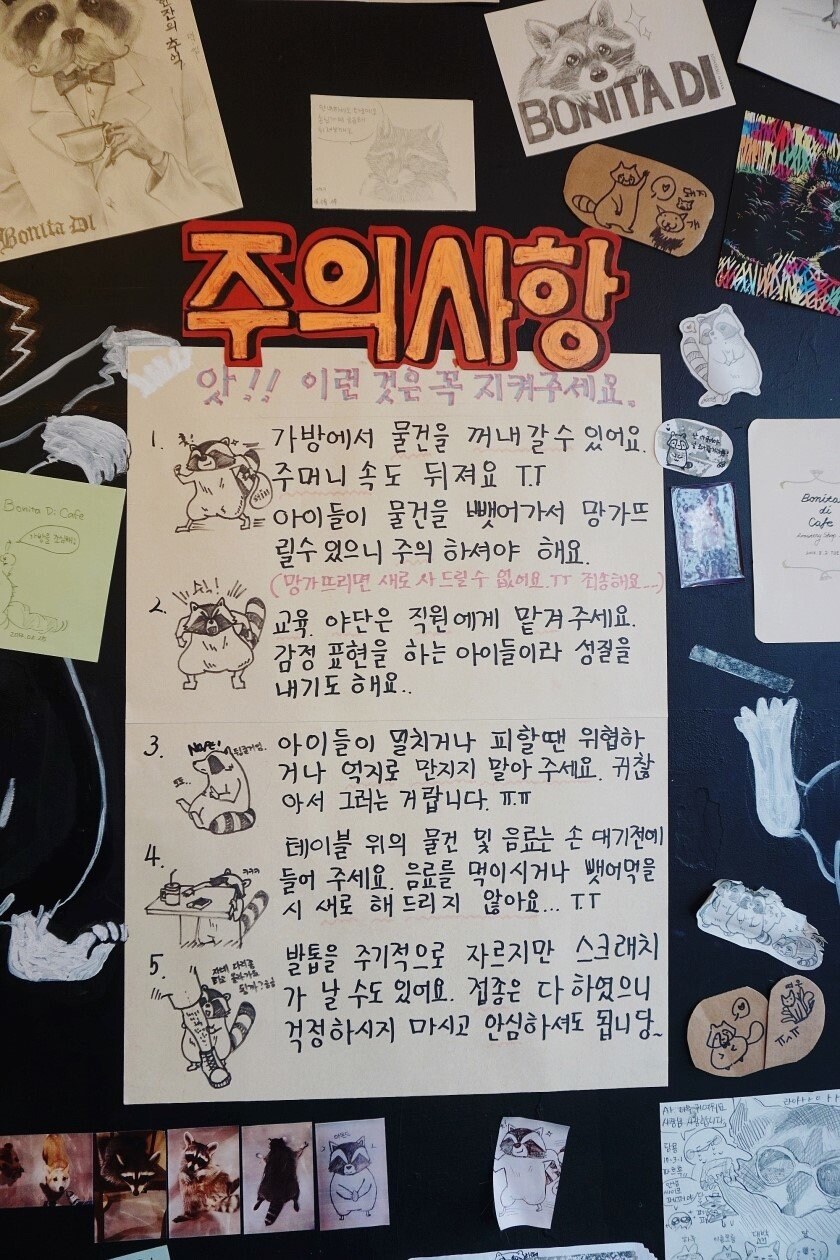 한잔의 추억
Bonita Di
BONITA DI
돼지
개
주의사항
앗!! 이런 것은 꼭 지켜주세요.
1. 가방에서 물건을 꺼내 갈 수 있어요.
주머니 속도 뒤져요 T.T
아이들이 물건을 뺏어가서 망가뜨
릴수 있으니 주의 하셔야 해요.
(망가뜨리면 새로 사 드릴 수 없어요.TT 죄송해요...)
2. 교육. 야단은 직원에게 맡겨 주세요.
감정 표현을 하는 아이들이라 성질을
내기도 해요..
3. 아이들이 밀치거나 피할땐 위협하
거나 억지로 만지지 말아 주세요. 귀찮
아서 그러는 거랍니다. ㅠ.ㅠ
4. 테이블 위의 물건 및 음료는 손 대기전에
들어 주세요. 음료를 먹이시거나 뺏어먹을
시 새로 해 드리지 않아요... T.T
5. 발톱을 주기적으로 자르지만 스크래치
가 날 수도 있어요. 접종은 다 하였으니
걱정하시지 마시고 안심하셔도 됩니당~
Bonita Di Cafe
Bonita
di
Cafe